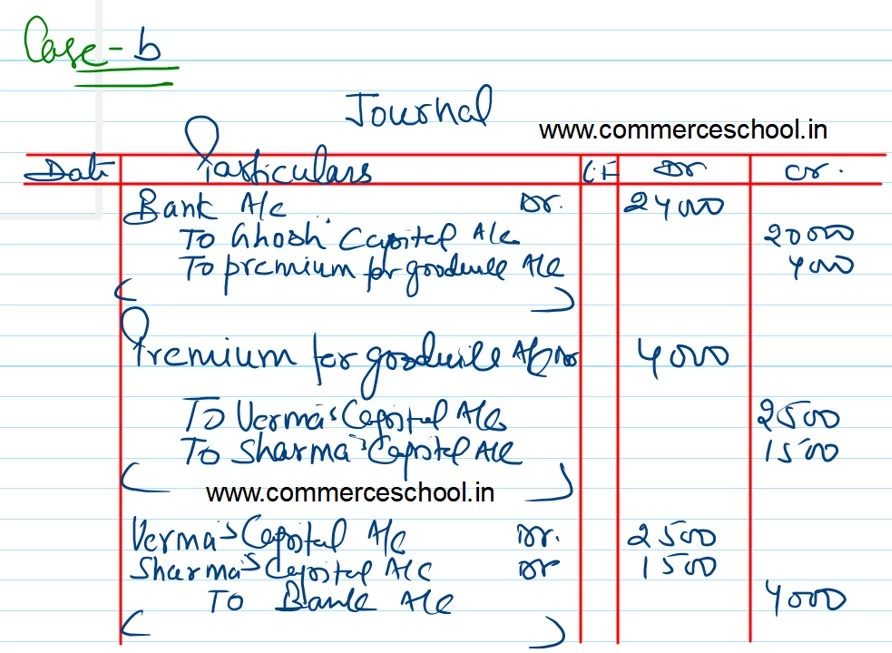 Case - b
Journal
www.commerceschool.in
Date Particulars L.F Dr Cr.
Bank A/c Dr. 24000
To Ghosh' Capital A/c 20000
To premium for goodwill A/c 4000
Premium for goodwill A/c Dr 4000
To Verma's Capital A/c 2500
To Sharma's Capital A/c 1500
www.commerceschool.in
Verma's Capital A/c Dr. 2500
Sharma's Capital A/c Dr 1500
To Bank A/c 4000